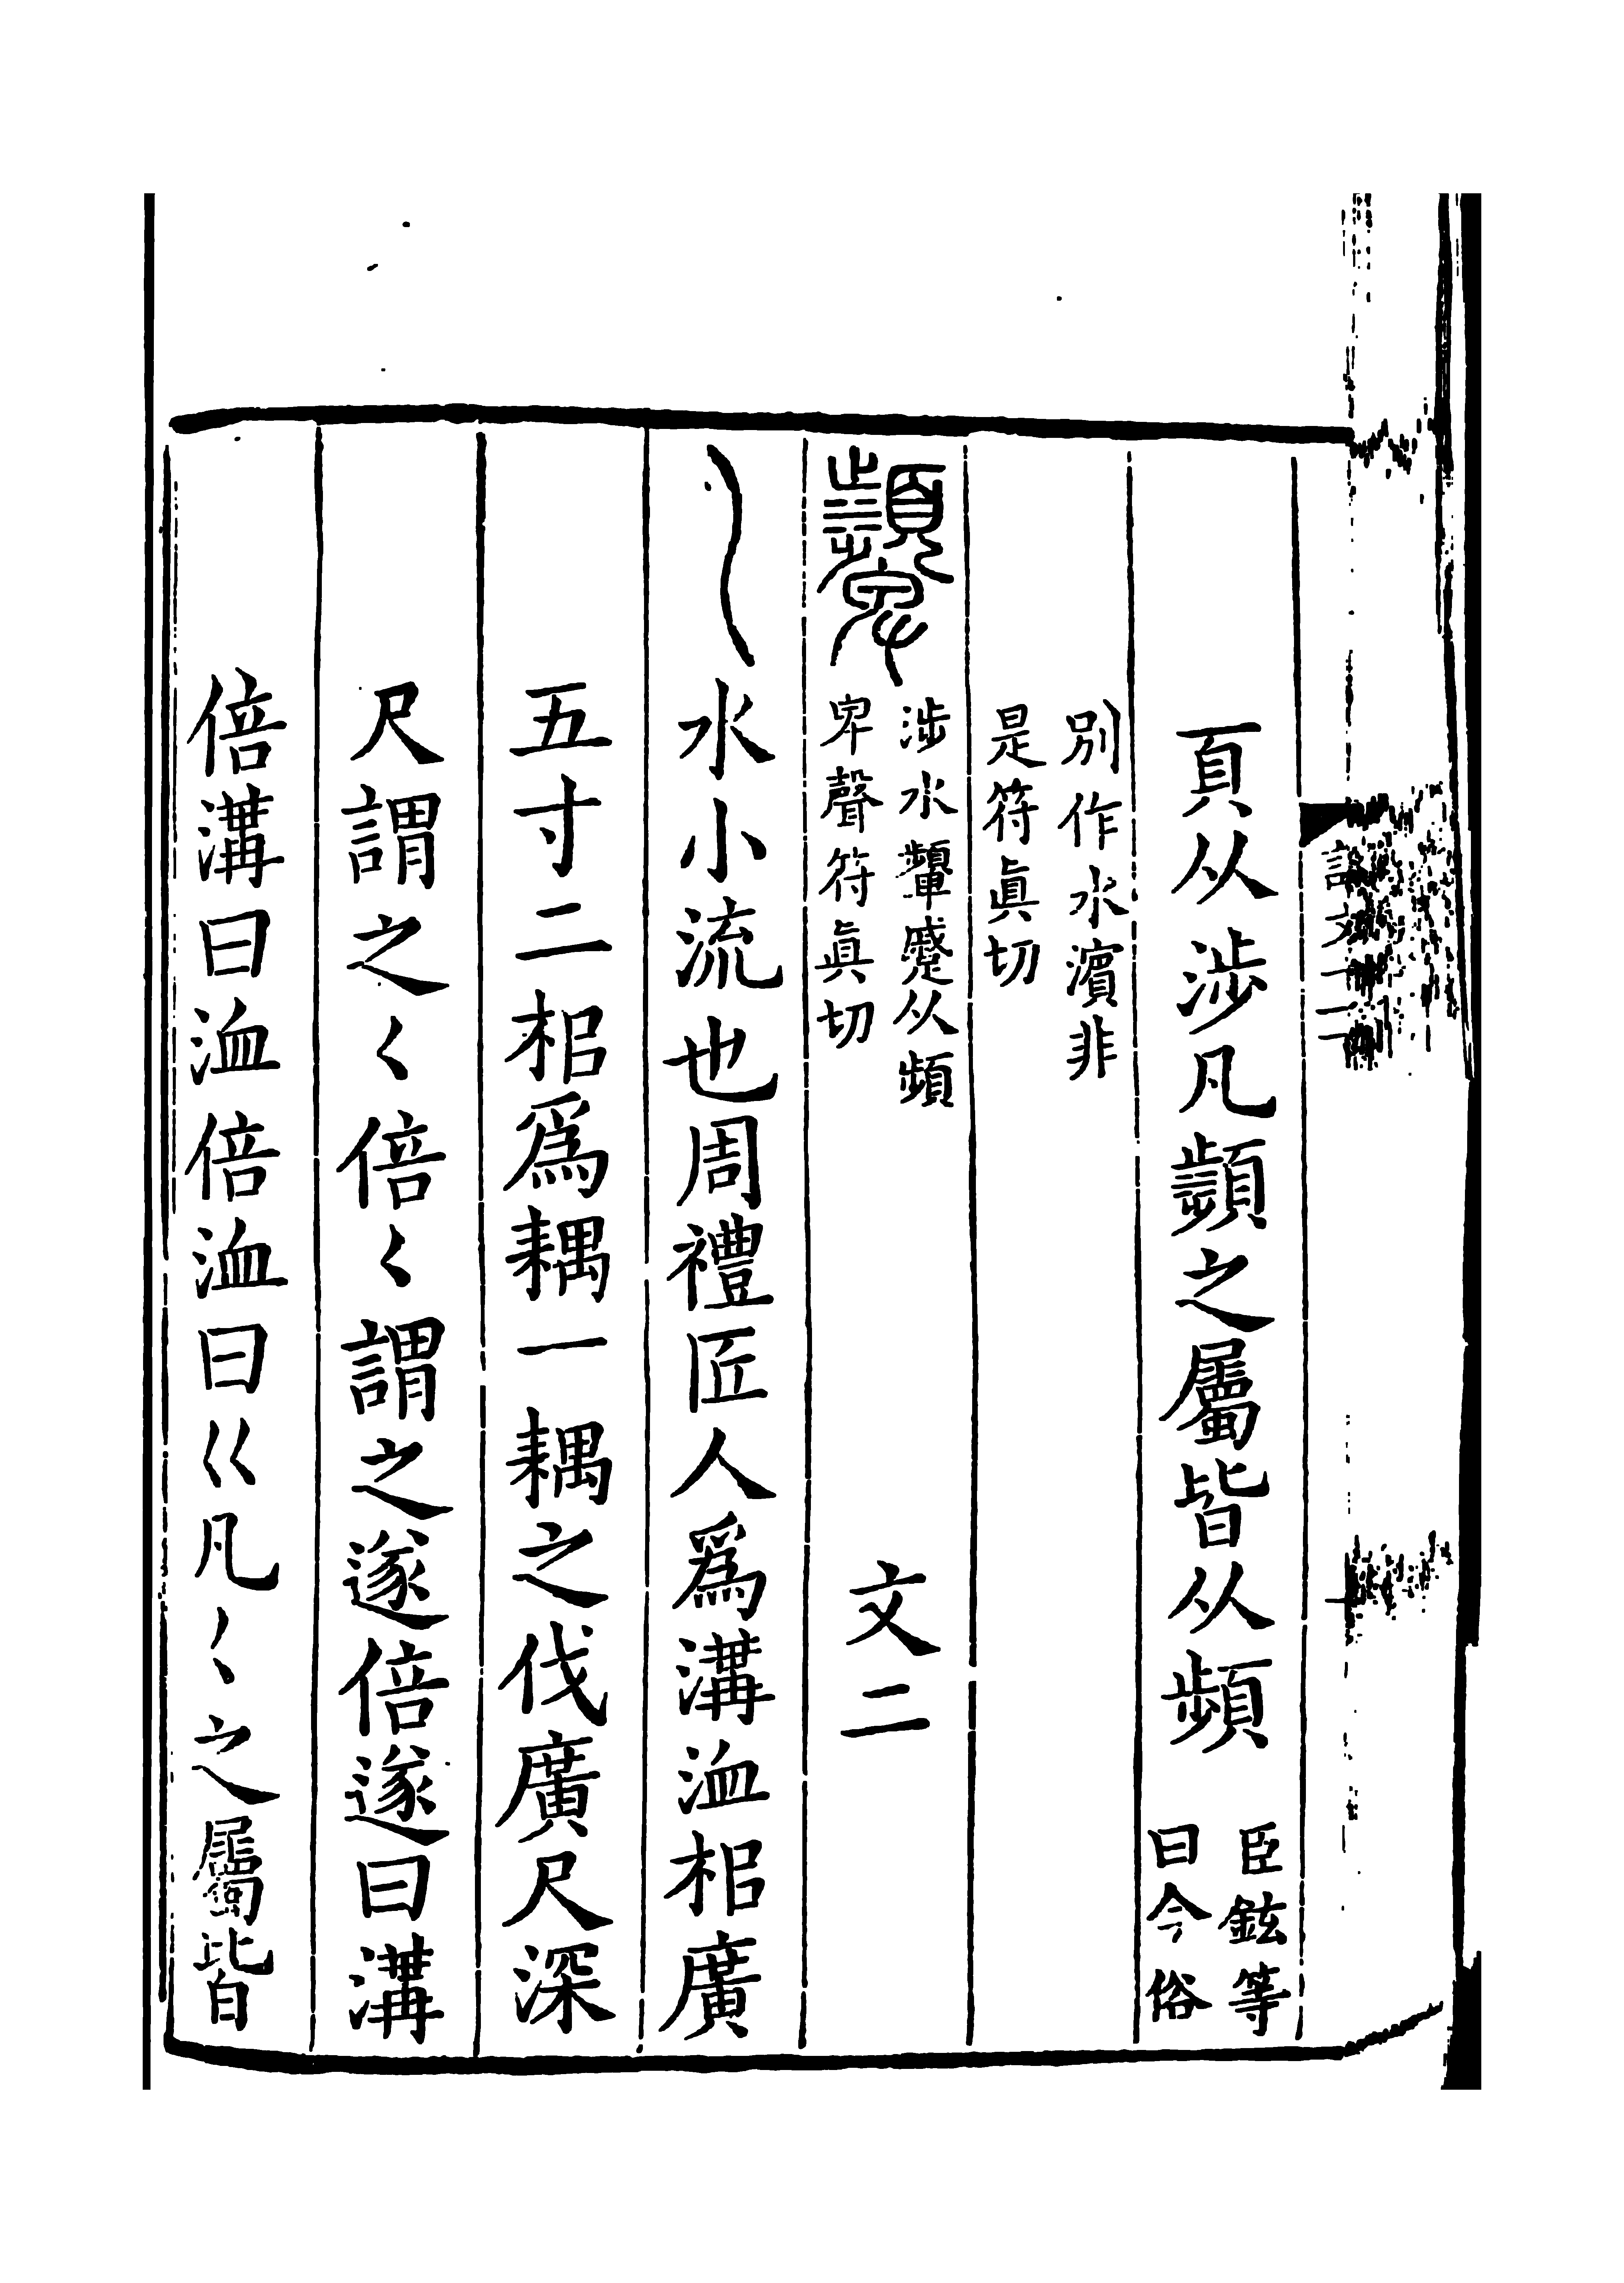 頁从涉凡𩕘之屬皆从頻 臣鉉等
曰今俗
別作水濱非
是符眞切
顰 涉水顰蹙从頻
卑聲符眞切 文二
𡿨 水小流也周禮匠人爲溝洫枱廣
五寸二枱爲耦一耦之伐廣尺深
尺謂之𡿨倍𡿨謂之遂倍遂曰溝
倍溝曰洫倍洫曰巜凡𡿨之屬皆